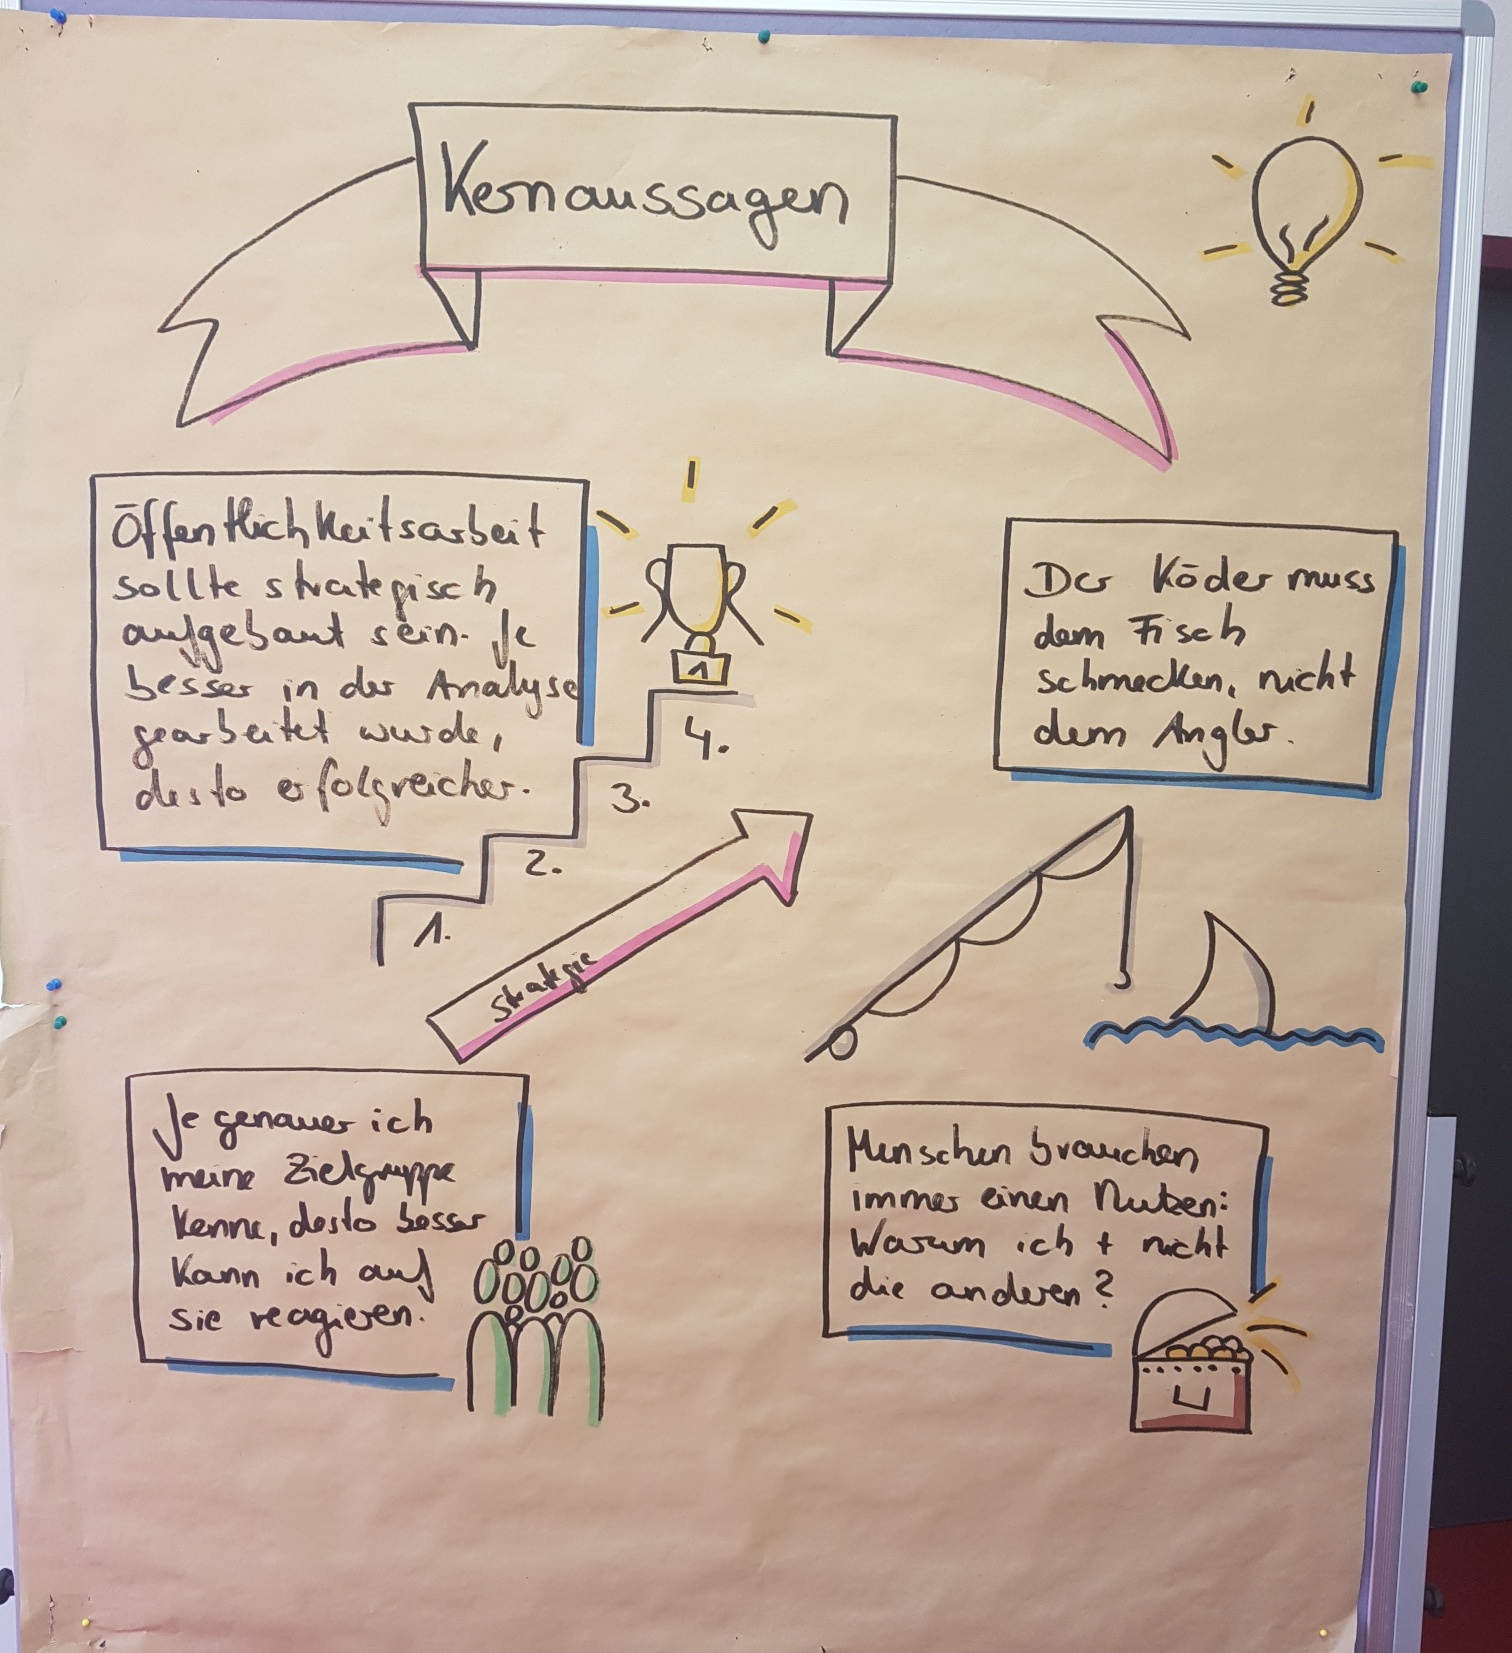 Kernaussagen
Öffentlichkeitsarbeit
sollte strategisch
aufgebaut sein. Je
besser in der Analyse
gearbeitet wurde,
desto erfolgreicher.
1
4.
3.
2.
1.
Strategie
Der Köder muss
dem Fisch
schmecken, nicht
dem Angler.
Je genauer ich
meine Zielgruppe
kenne, desto besser
kann ich auf
sie reagieren.
Menschen brauchen
immer einen Nutzen:
Warum ich + nicht
die anderen?